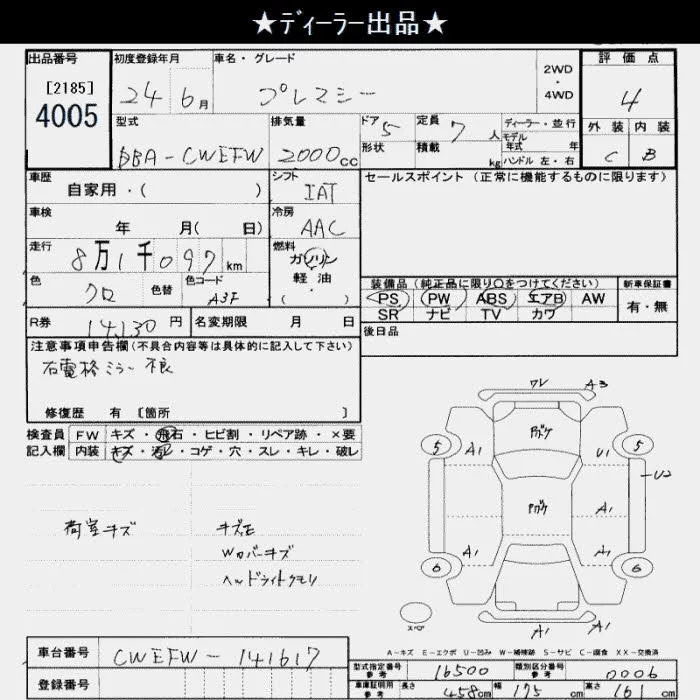 ★ディーラー出品★
出品番号 初度登録年月 車名・グレード 2WD・4WD 評価点
[2185]
4005
24年6月 プレマシー 4
型式 排気量 ドア 5 定員 7人 ディーラー・並行
モデル年式 年
形状 積載 kg ハンドル 左・右
外装 内装
DBA-CWEFW 2000cc C B
車歴 シフト セールスポイント (正常に機能するものに限ります)
自家用・( ) IAT
車検 冷房
年 月( 日) AAC
走行 燃料
8万1千097km ガソリン
軽油
( )
色 色替 色コード
クロ A3F
装備品 (純正品に限り○をつけてください) 新車保証書
PS PW ABS エアB AW 有・無
SR ナビ TV カワ
R券 14130円 名変期限 月 日 後日品
注意事項申告欄(不具合内容等は具体的に記入して下さい)
右電格ミラー不良
修復歴 有 [箇所 ]
検査員 FW キズ・飛石・ヒビ割・リペア跡・×要
記入欄 内装 キズ・汚れ・コゲ・穴・スレ・キレ・破レ
荷室キズ
Wカバーキズ
ヘッドライトクモリ
ワレ A3
5 A1 U1 5
U2
A1
6 A1 A1 6
スペア
A1 A1
A-キズ E-エクボ U-凹み W-補修跡 S-サビ C-腐食 XX-交換済
車台番号 CWEFW-141617
登録番号
型式指定番号参考 16500 類別区分番号参考 0006
車庫証明用参考 長さ 458cm 幅 175cm 高さ 161cm